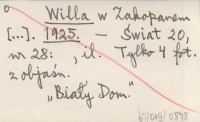 Willa w Zakopanem
[...]. 1925. — Świat 20,
nr 28: , il. Tylko 4 fot.
z objaśn.
„Biały Dom."